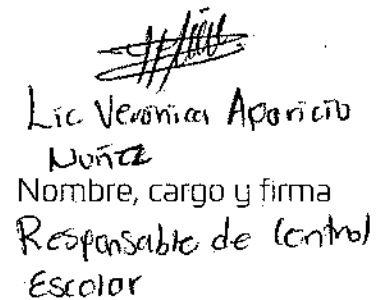 Lic Veronica Aparicio
Nuñez
Nombre, cargo y firma
Responsable de Control
Escolar